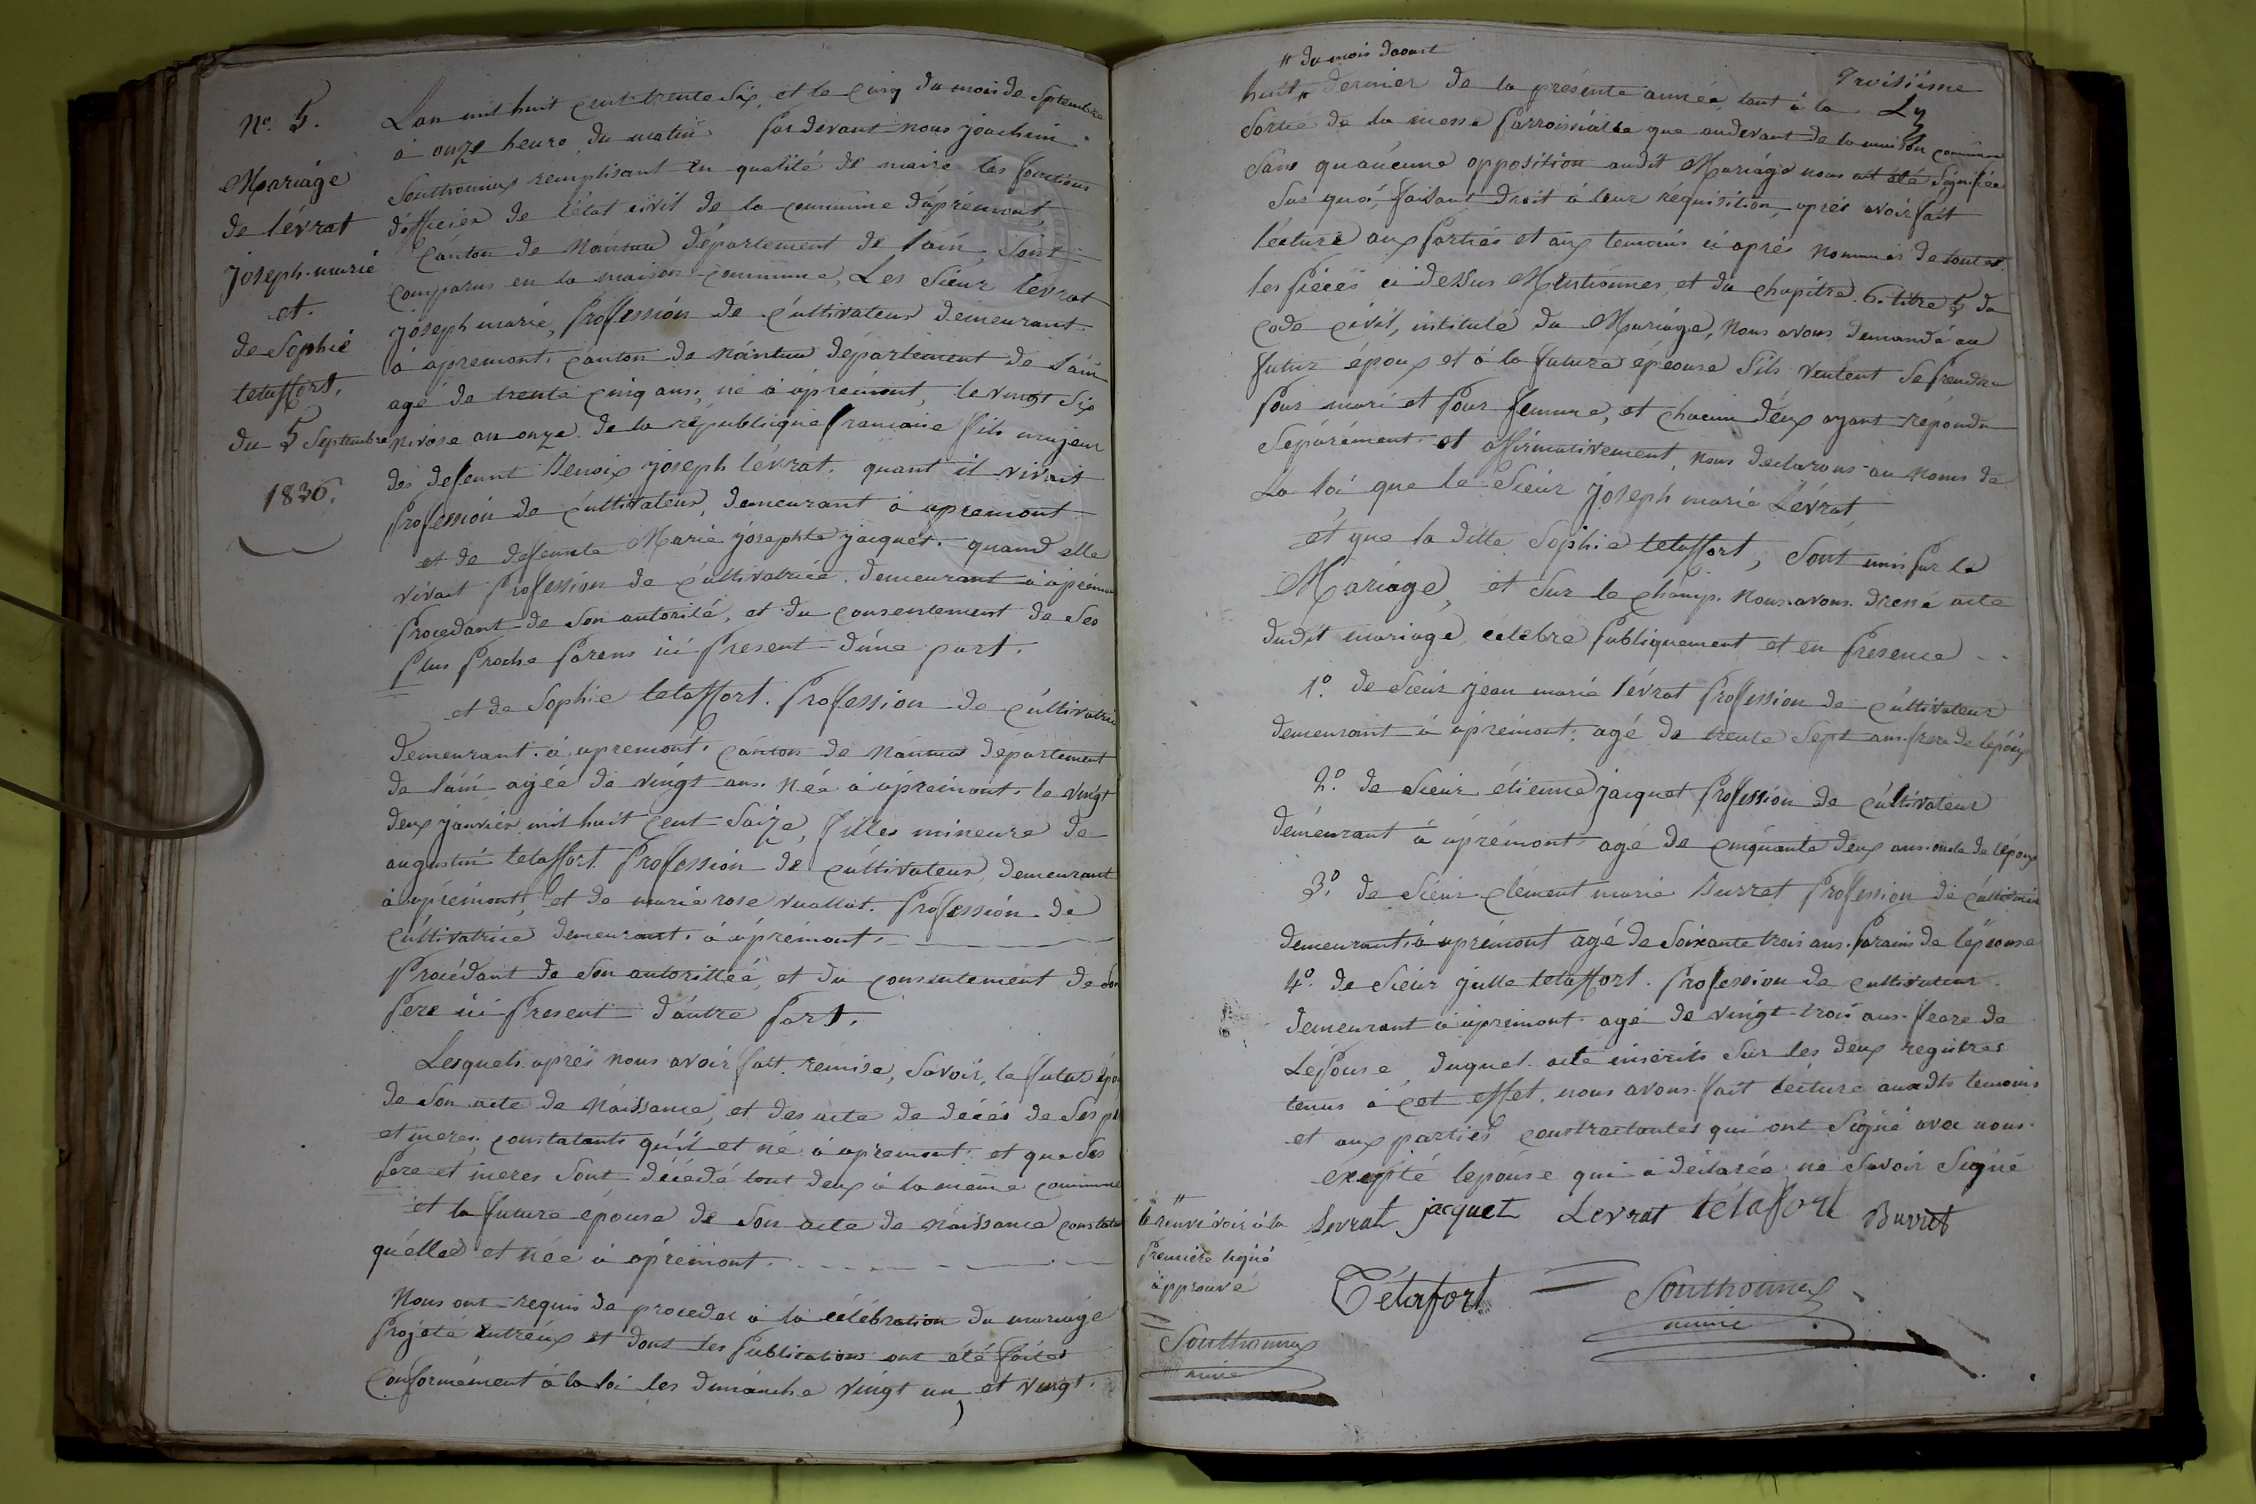 No. 5.
Mariage
de lévrat
joseph marie
et.
de Sophie
tetaffort.
du 5 Septembre
1836.
Lan mil huit cent trente Six, et le cinq du mois de Septembre
à onze heure du matin par devant nous joachim
Southonnax remplisant en qualité de maire les fonctions
d'officier de l'état civil de la commune d'apremont,
Canton de Nantua département de l'ain, Sont
comparus en la maison commune, Les Sieur levrat
joseph marie, Profession de cultivateur demeurant
à apremont, canton de Nantua département de l'ain
agé de trente cinq ans, né à apremont, le vingt Six
nivose an onze de la république francaise fils majeur
des defeunt Benoix joseph lévrat. quant il vivait
Profession de cultivateur, demeurant à apremont
et de defeunte Marie josephte jacquet. quand elle
vivait Profession de cultivatrice. demeurant à apremon
Procedant de Son autorité, et du consentement de Ses
Plus Proche Parens ici Present d'une part.
et de Sophie tetaffort. Profession de cultivatrice
demeurant à apremont, canton de Nantua département
de l'ain agéé de vingt ans. Née à apremont. le vingt
deux janvier mil huit cent Saize, filles mineure de
augustin tetaffort Profession de cultivateur, demeurant
à apremont, et de marie rose vuallat. Profession de
cultivatrice demeurant à apremont.
Procédant de Son autoritteé, et du consentement de Son
Pere ici Present d'autre Part.
Lesquels aprés nous avoir fait remise, Savoir, le futur épou
de Son acte de Naissance, et des acte de décés de Ses pe
et meres, constatants qu'il et né à apremont, et que Ses
Pere et meres Sont décédé tout deux à la même commune
et la future épouse de Son acte de Naissance constata
qu'elles et née à apremont.
Nous ont requis de proceder à la célébration du mariage
Projeté entreux et dont les Publications ont été faites
Conformément à la loi les dimanche vingt un et vingt
" du mois daoust
Troisiéme
huit " dernier de la présente année, tant à la
Sortie de la messe Parroissialle que audevant de la maison commune
Sans qu'aucune opposition audit Mariage nous ait été Signifiée
Sur quoi, faisant droit à leur réquisition, aprés avoir fait
lecture aux Parties et aux temoins ci aprés nommés de toutes
les Piécés ci dessus Mentionnes, et du chapitre. 6. titre 5 du
code civil, intitulé du Mariage, Nous avons demandé au
futur époux et à la future épeouse S'ils veulent Se Prendre
Pour mari et Pour femme, et chacun d'eux ayant répondu
Séparément et affirmativement, nous declarons au noms de
La loi que le Sieur joseph marie Lévrat
et que la ditte Sophie tetaffort, Sont unis Par le
Mariage, et Sur le champ. Nous avons dressé acte
dudit mariage célébré Publiquement et en Presence
1.º de Sieur jean marie lévrat Profession de cultivateur
demeurant à apremont. agé de trente Sept ans. frere de lépoux
2.º de Sieur étienne jacquet Profession de cultivateur
demeurant à apremont agé de cinquante deux ans. oncle de lépoux
3.º de Sieur clément marie Burrat Profession de cultivateur
demeurant à apremont agé de Soixante trois ans. Parain de lépeouse
4.º de Sieur julle tetaffort. Profession de cultivateur.
demeurant à apremont agé de vingt trois ans. feare de
Lépouse, duquel acte inscrits Sur les deux registres
tenus à cet effet. nous avons fait lecture auxdts temoins
et aux parties contractantes qui ont Signé avec nous.
exepté lepouse qui à déclarée ne Savoir Signé
Levrat jacquet Levrat tétaffort Burrat
Tétafort Southonnax
maire
"
le renvé voir à la
Premiére ligne
approuvé
Southonnax
maire